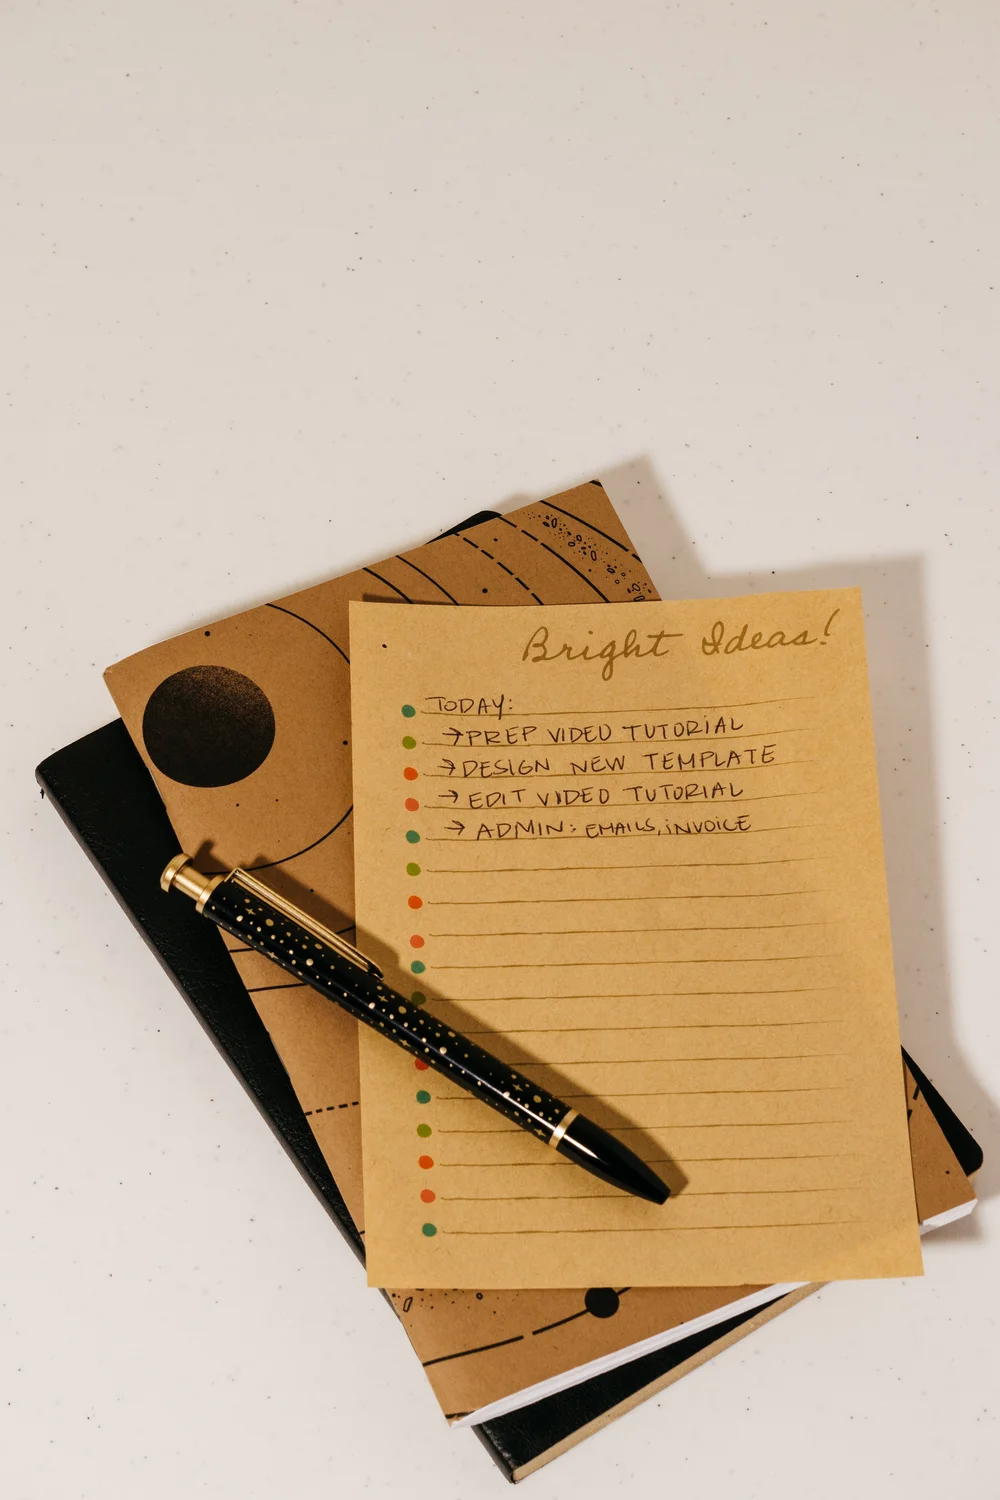 Bright Ideas!
TODAY:
→PREP VIDEO TUTORIAL
→DESIGN NEW TEMPLATE
→ EDIT VIDEO TUTORIAL
→ ADMIN: EMAILS, INVOICE